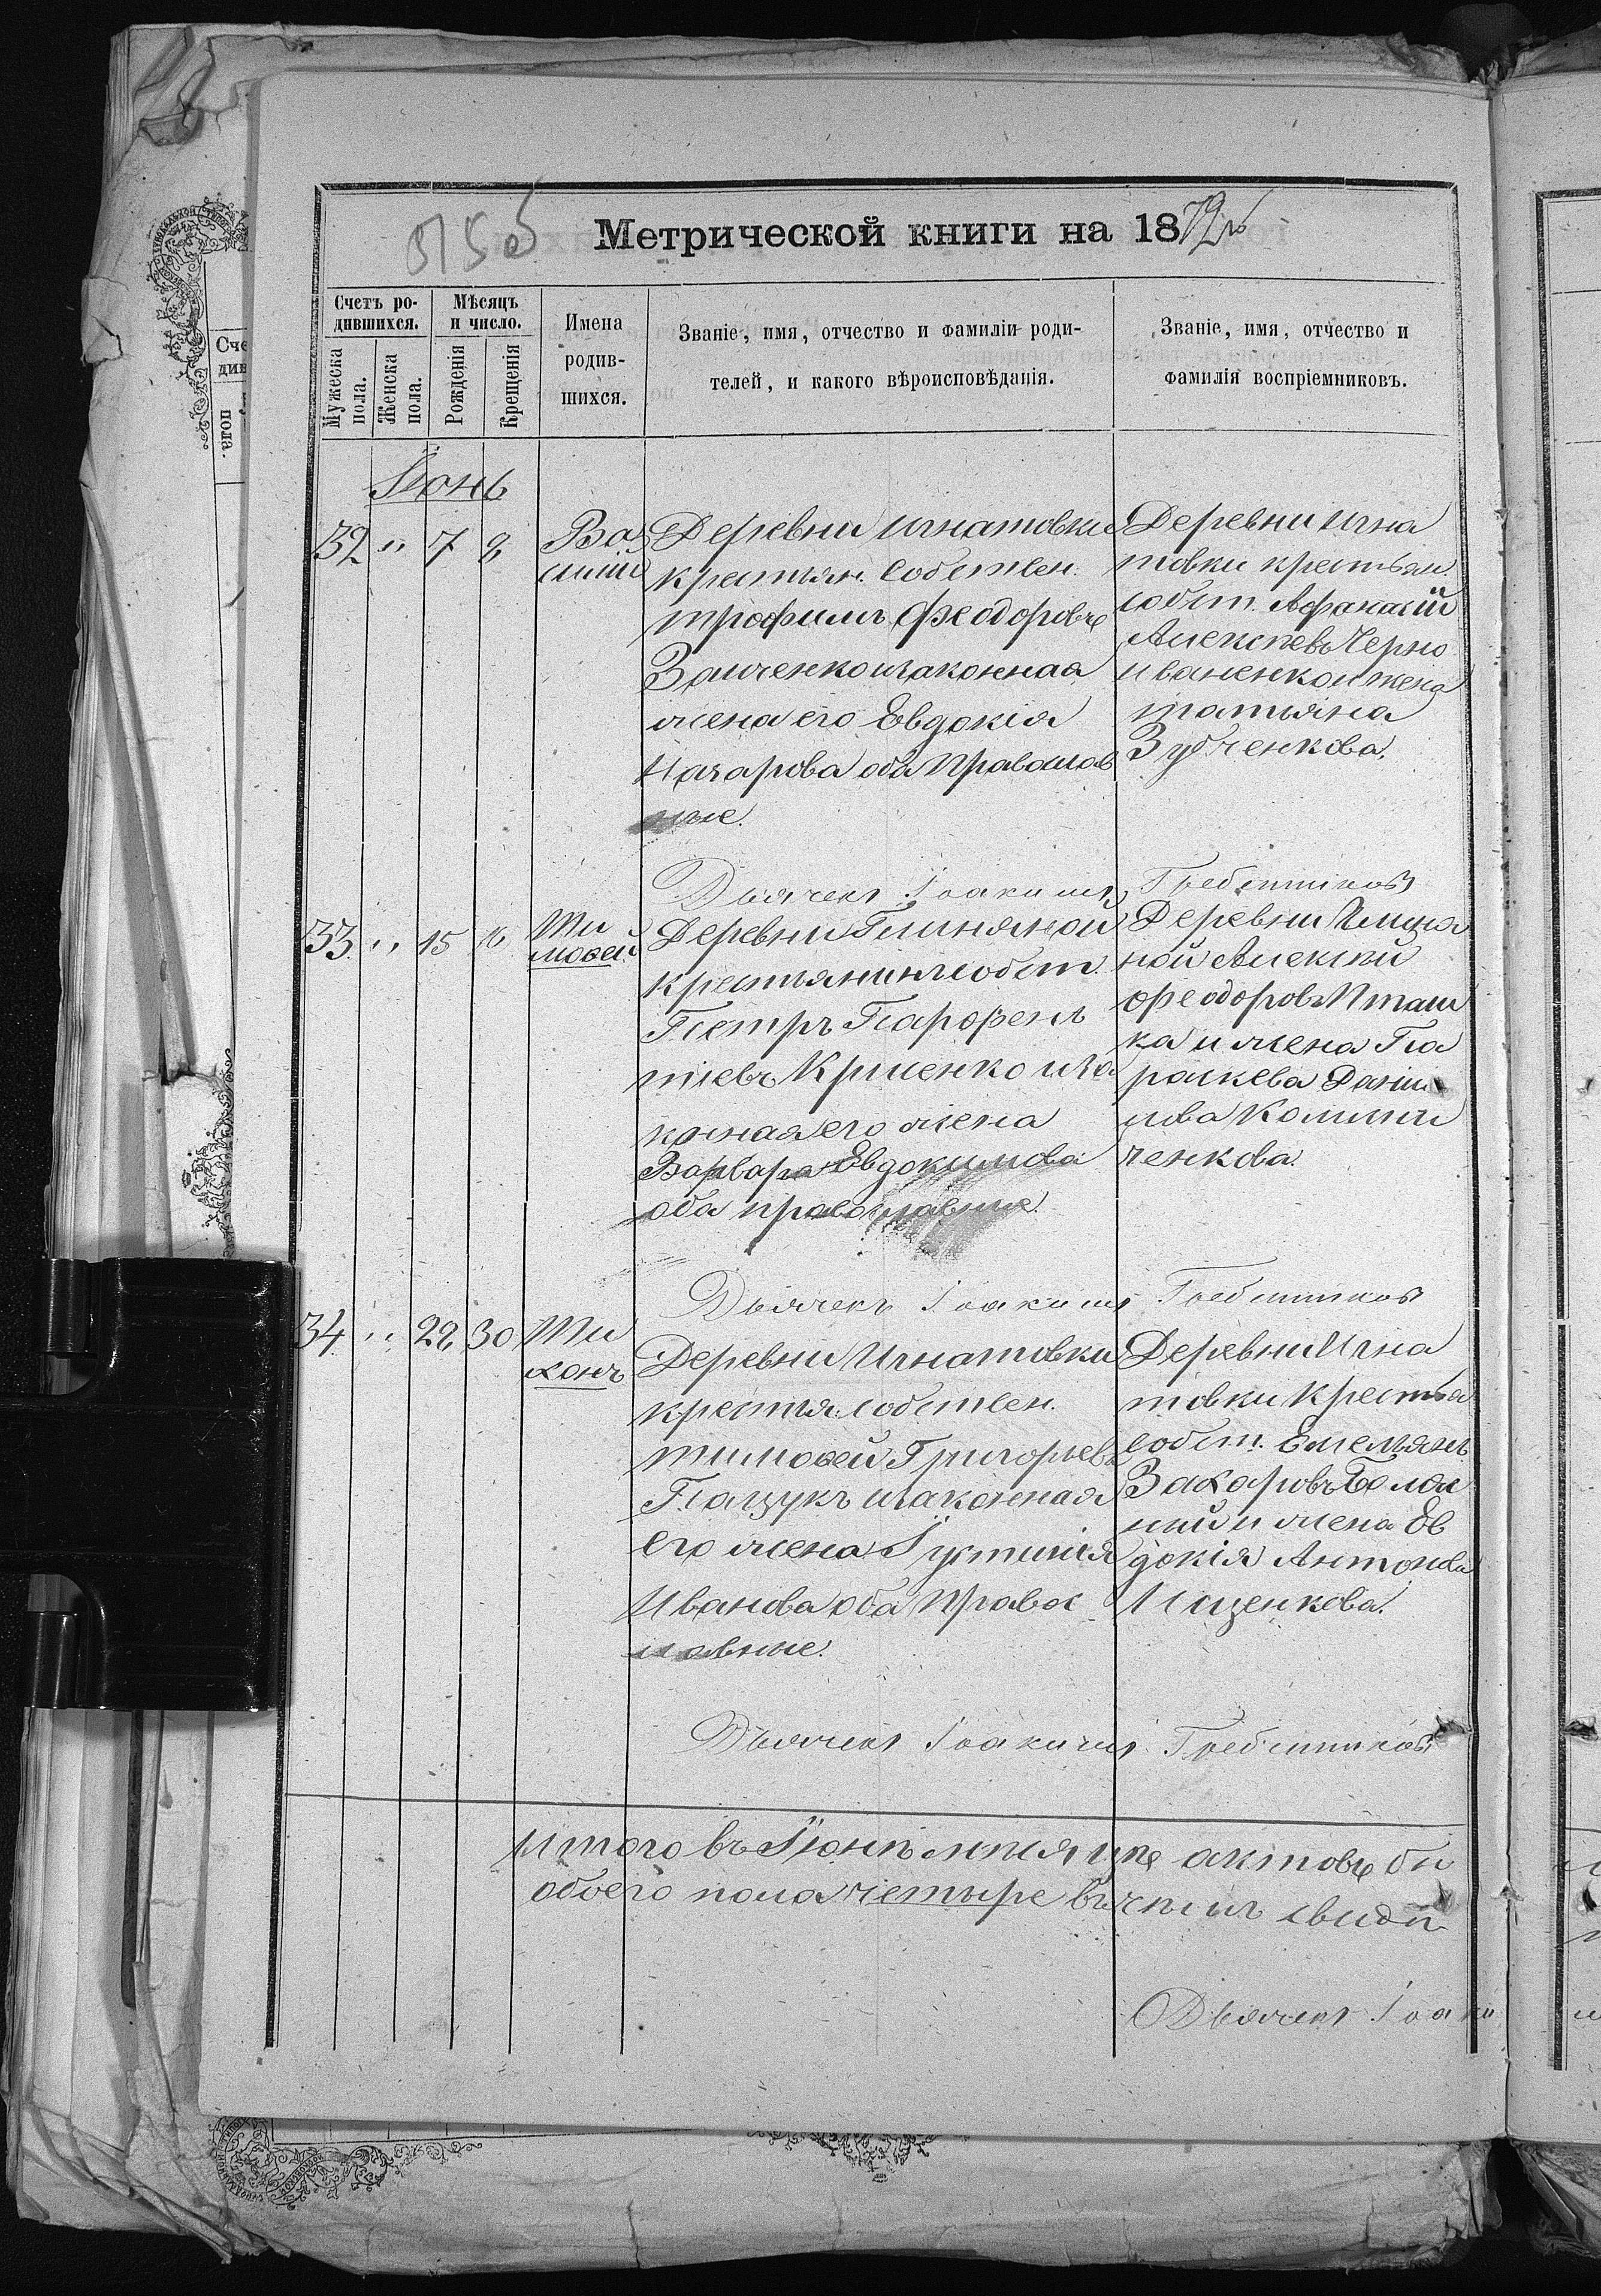 Метрической книги на 1872 г
Счетъ ро-
дившихся.
Мужеска пола.
Женска пола.
Мѣсяцъ
и число.
Рожденія
Крещенія
Имена
родив-
шихся.
Званіе, имя, отчество и фамиліи роди-
телей, и какого вѣроисповѣданія.
Званіе, имя, отчество и
фамилія воспріемниковъ.
Іюнь
32 " 7 8
Ва
силій
Деревни Игнатовки
крестьян. собствен.
Трофимъ Феодоровъ
Заиченко и законная
жена его Евдокія
Назарова оба Православ
ные.
Деревни Игна
товки крестьян.
собст. Афанасій
Алексѣевъ Черно
иваненко и жена
Татьяна
Зубченкова.
Дьячекъ Іоакимъ Гребенниковъ
33 " 15 16
Ти
моѳей
Деревни Глиняной
крестьянинъ собст.
Петръ Парфен
тіевъ Крисенко и за
конная его жена
Варвара Евдокимова
оба православные.
Деревни Глиня
ной Алексѣй
Феодоровъ Пташ
ка и жена Па
раскева Дани
лова Калини
ченкова.
Дьячекъ Іоакимъ Гребенниковъ
34 " 28 30
Ти
хонъ
Деревни Игнатовки
крестья. собствен.
Тимоѳей Григорьевъ
Пащукъ и законная
его жена Іустинія
Иванова оба Правос
лавные.
Деревни Игна
товки Крестья
собст. Емельянъ
Захаровъ
и жена Ев
докія Антонова
Ищенкова.
Дьячекъ Іоакимъ Гребенниковъ
Итого въ Іюнѣ мѣсяцѣ актовъ
обоего пола четыре въ чемъ свидѣ
Дьячекъ Іоаки